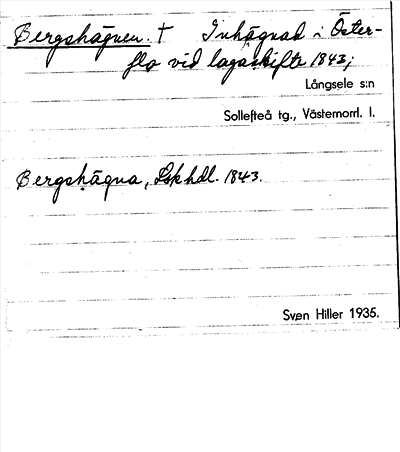 Bergshägnen. † Inhägnad i Öster-
flo vid lagaskifte 1843;
Långsele s:n
Sollefteå tg., Västernorrl. l.
Bergshägna, Lskhdl. 1843.
Sven Hiller 1935.